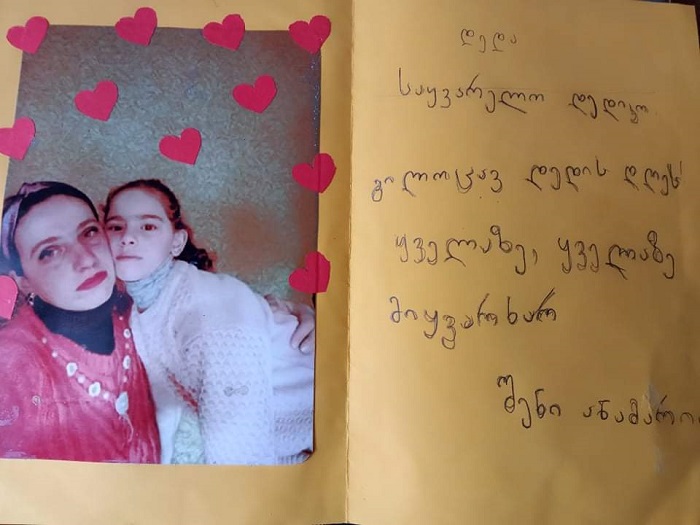 დედა
საყვარელო დედიკო
გილოცავ დედის დღეს
ყველაზე, ყველაზე
მიყვარხარ
შენი ანამარია